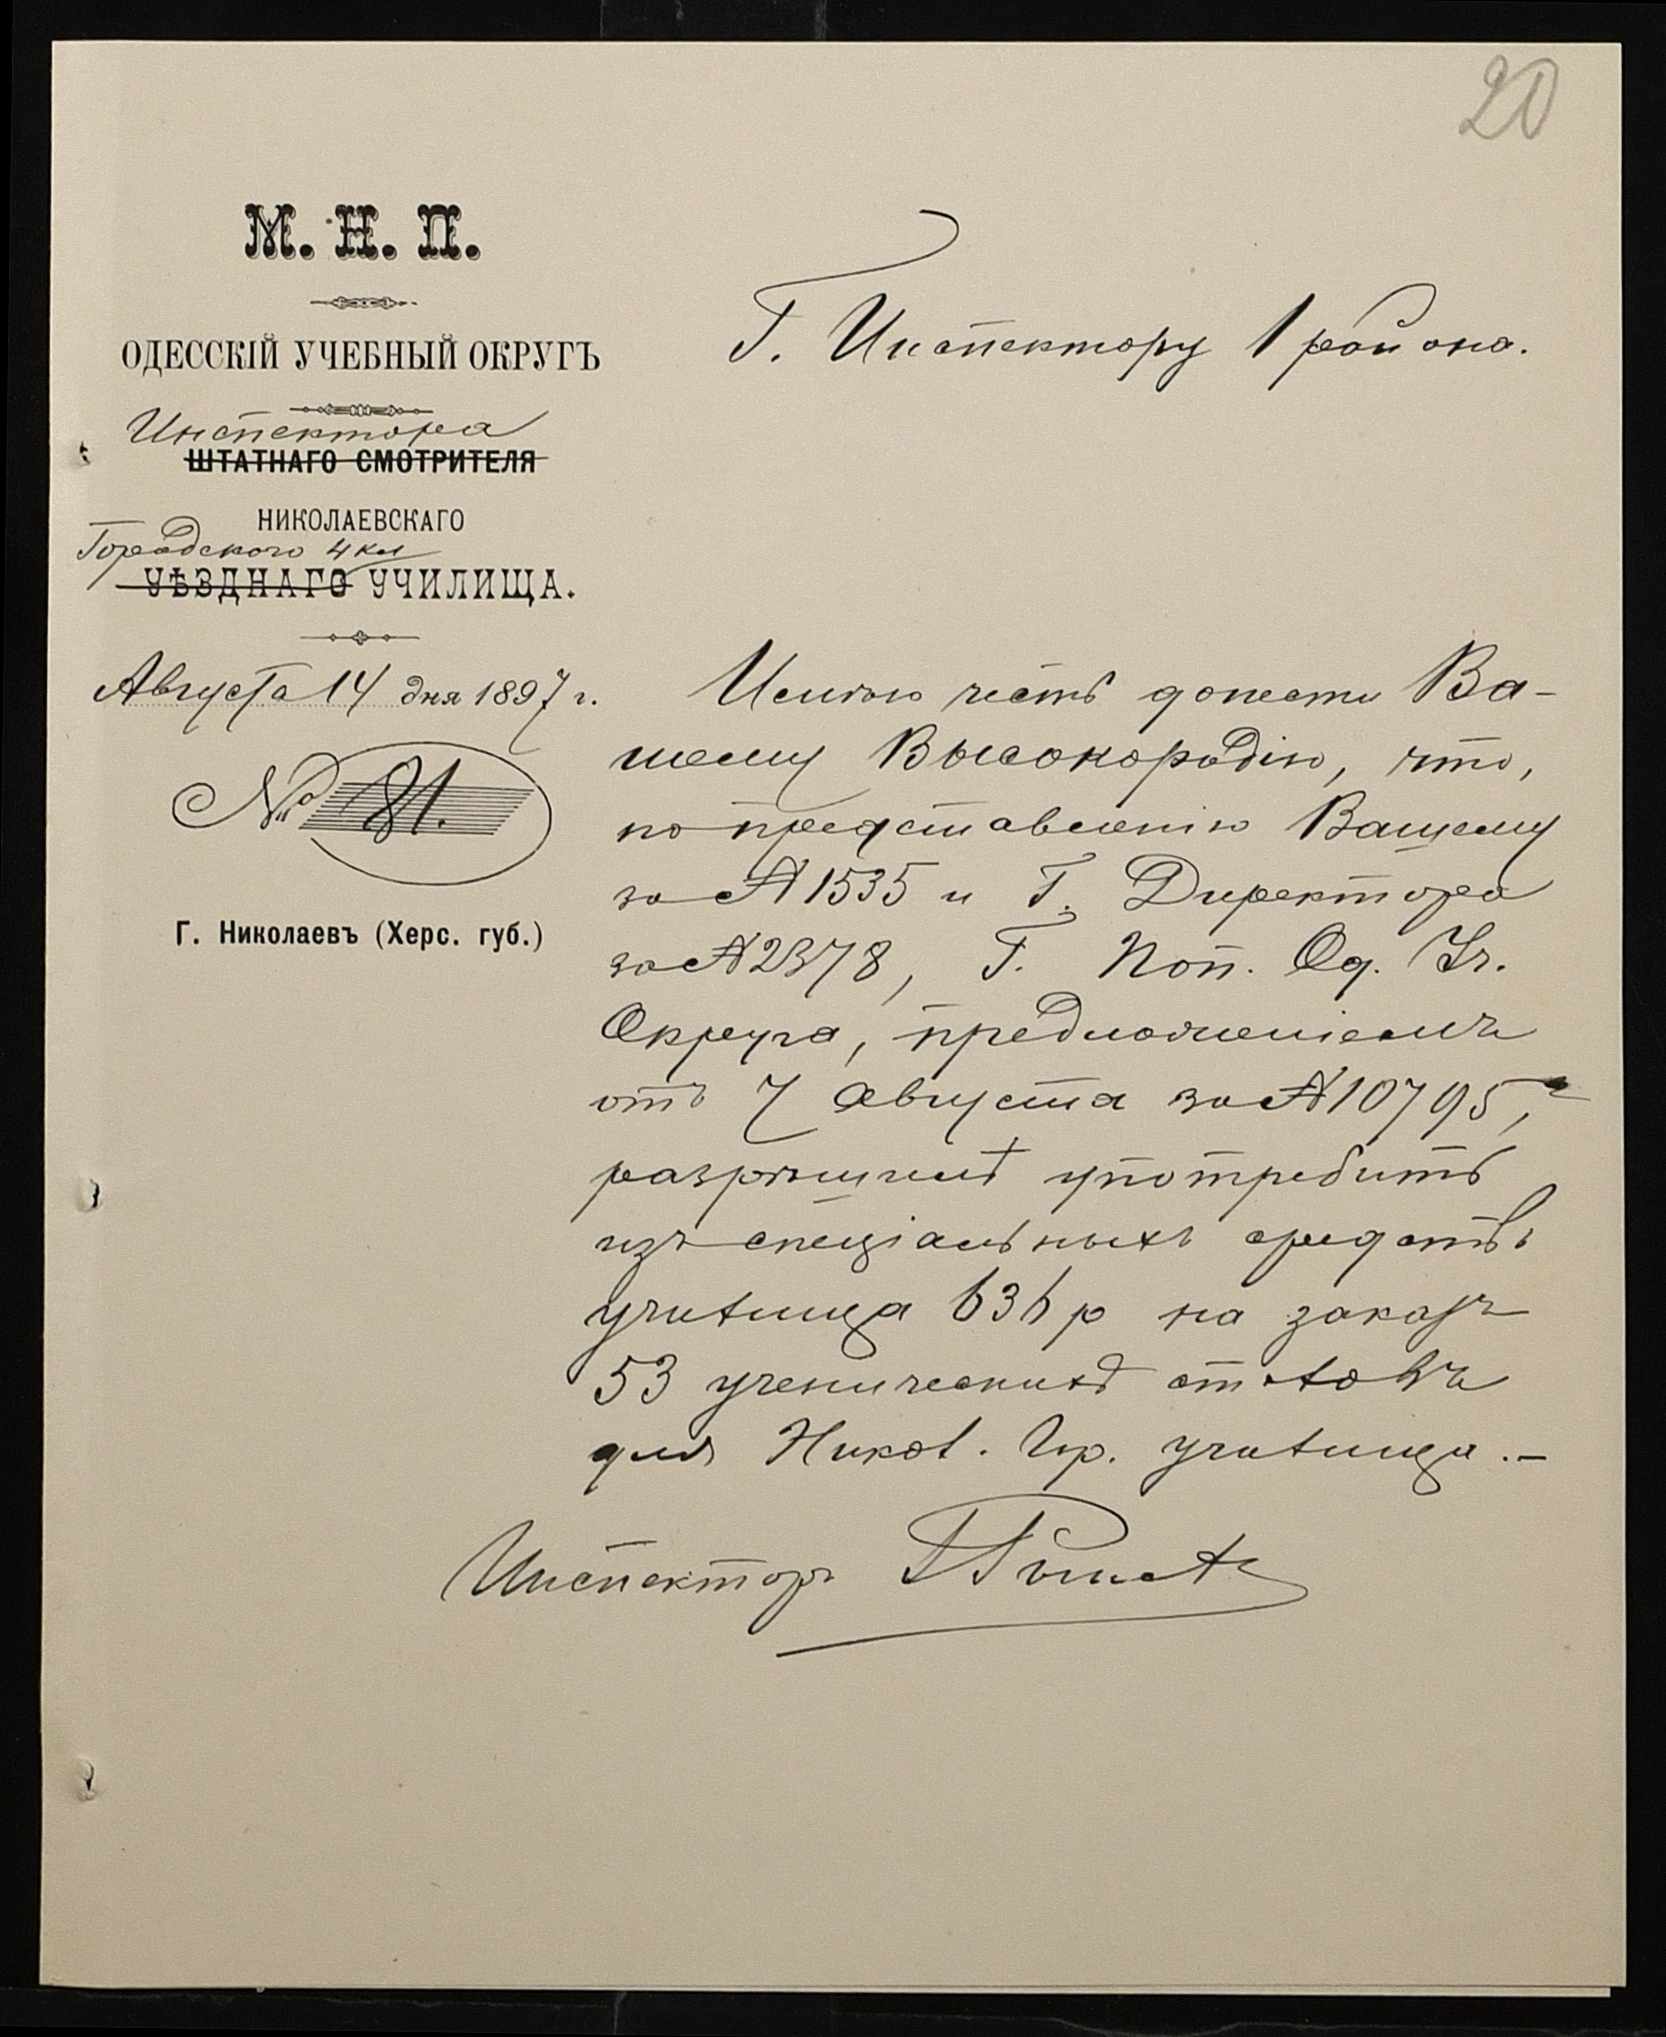 20
М. Н. П.
ОДЕССКІЙ УЧЕБНЫЙ ОКРУГЪ
Инспектора
ШТАТНАГО СМОТРИТЕЛЯ
НИКОЛАЕВСКАГО
Городского 4 кл
УѢЗДНАГО УЧИЛИЩА.
Августа 14 дня 1897 г.
№ 81.
Г. Николаевъ (Херс. губ.)
Г. Инспектору 1 района.
Имѣю честь донести Ва-
шему Высокородію, что,
по представленію Вашему
за № 1535 и Г. Директора
за № 2378, Г. Поп. Од. Уч.
Округа, предложеніемъ
отъ 7 Августа за № 10795,
разрѣшилъ употребить
изъ спеціальныхъ средствъ
училища 636 р на заказъ
53 ученическихъ столовъ
для Никол. Гор. училища.-
Инспекторъ